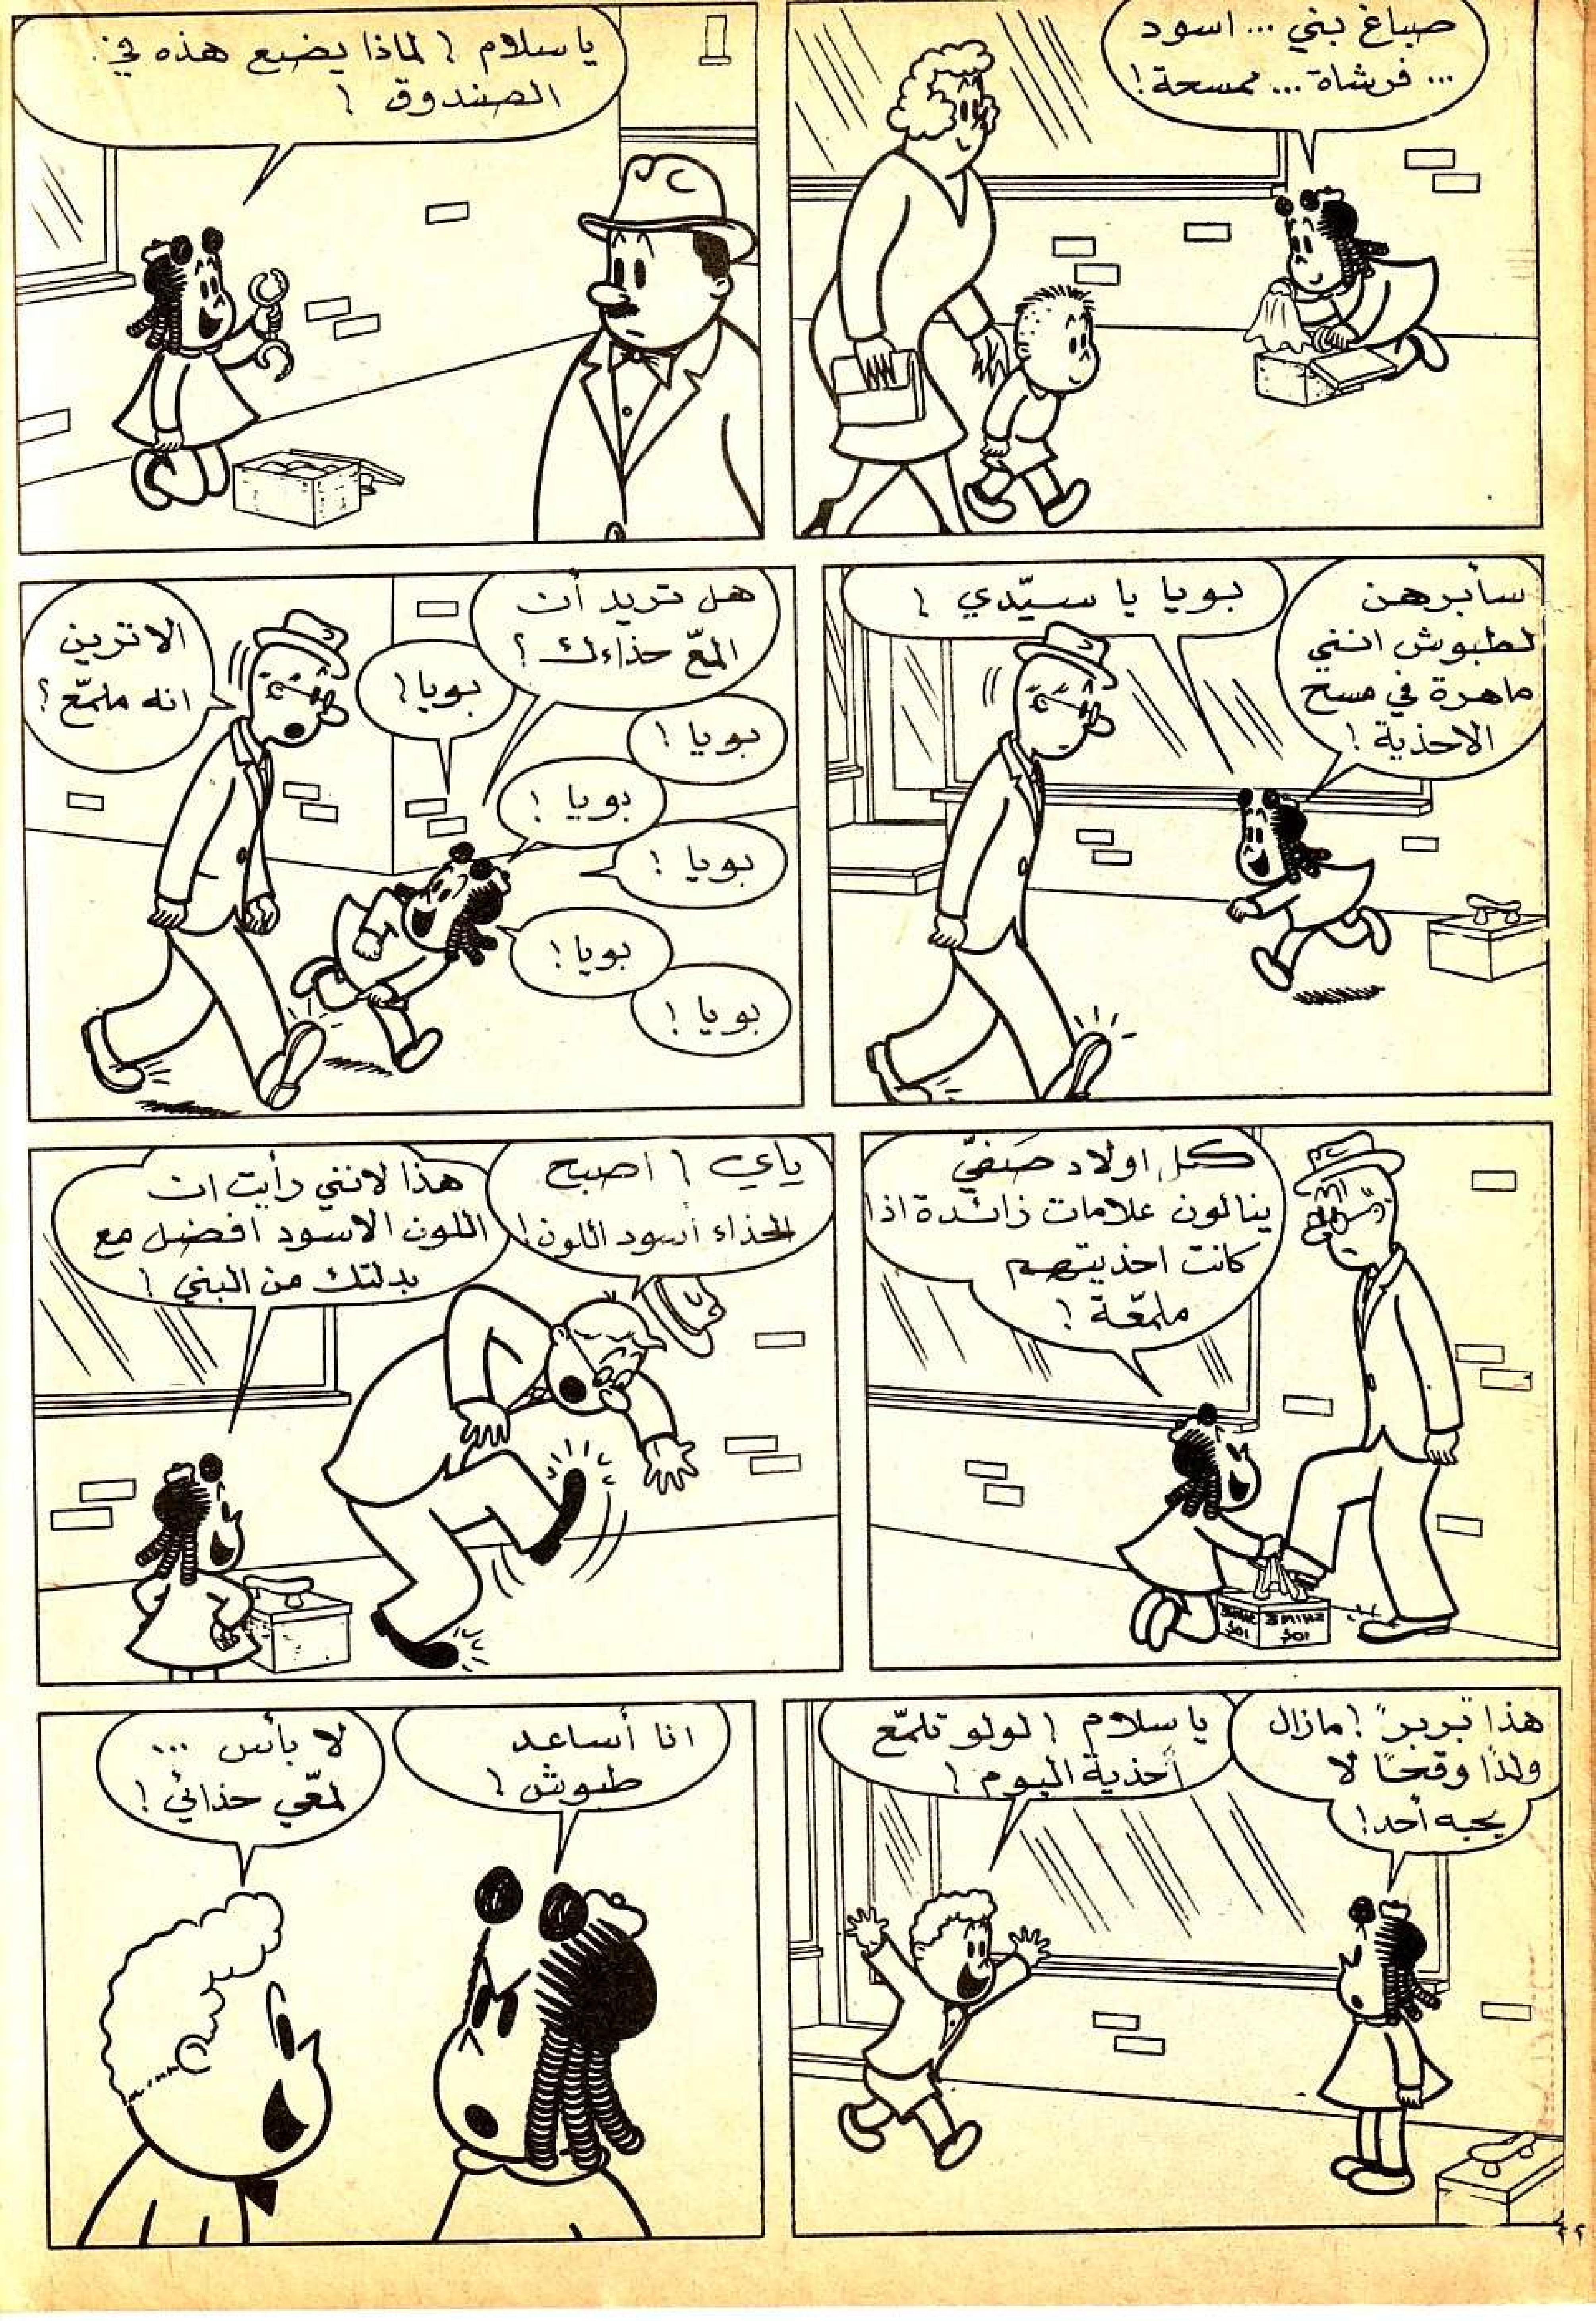 صباغ بني ... اسود
... فرشاة ... ممسحة!
يا سلام! لماذا يضع هذه في
الصندوق!
سأبرهن
لطبوش انني
ماهرة في مسح
الاحذية!
بويا يا سيّدي!
هل تريد أن
المّع حذاءك؟
بويا!
بويا!
بويا!
بويا!
بويا!
بويا!
الا ترين
انه ملمّع؟
كل اولاد صفّي
ينالون علامات زائدة اذا
كانت احذيتهم
ملمّعة!
SHINE
10¢
SHINE
10¢
ياي! اصبح
الحذاء أسود اللون!
هذا لانني رأيت ان
اللون الاسود افضل مع
بدلتك من البني!
هذا بربر! مازال
ولدًا وقحًا لا
يحبه أحد!
يا سلام! لولو تلمّع
أحذية اليوم!
انا أساعد
طبوش!
لا بأس ...
لمّعي حذائي!